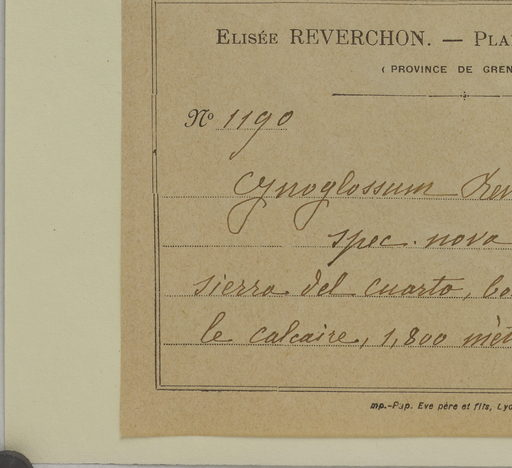 ELISÉE REVERCHON. — PLA
( PROVINCE DE GREN
Nº 1190
Cynoglossum
spec. nova
sierra del cuarto, bo
le calcaire, 1,800 mèt
mp.-Pap. Eve père et fils, Lyo